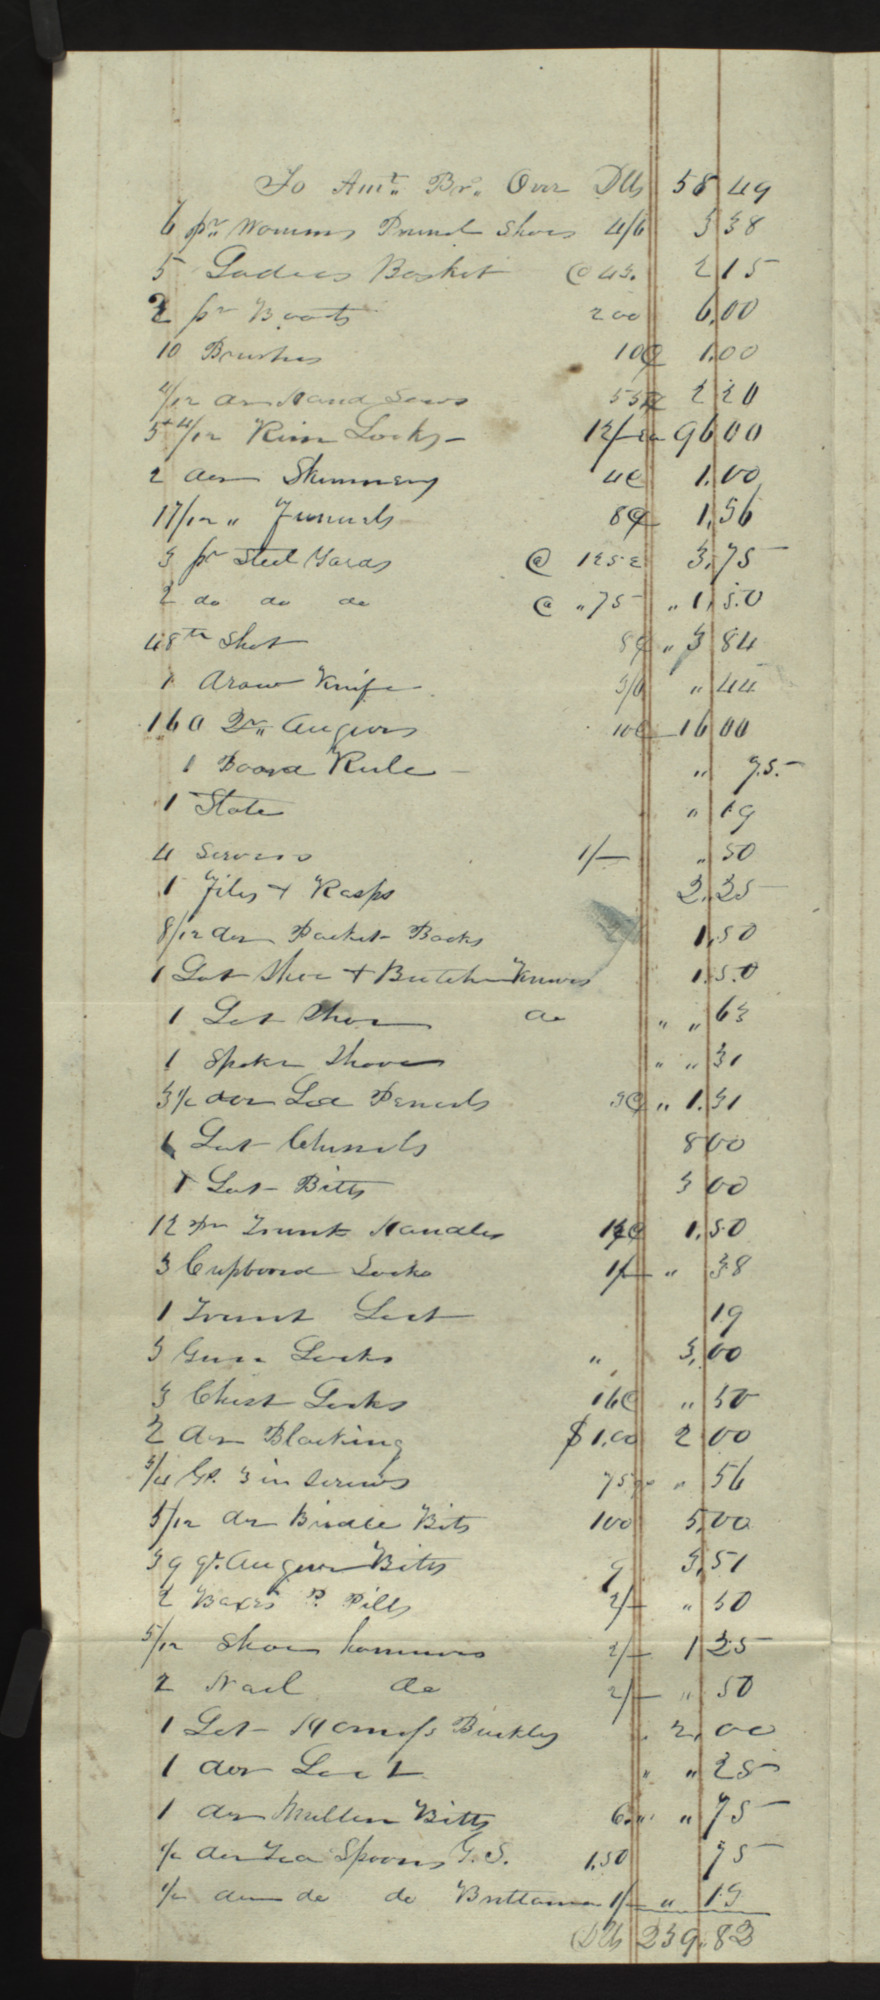 To Amt. Br. Over Dlls 58 49
6 pr. Womens Prunel Shoes 4/6 3 38
5 Ladies Basket @ 43. 2 15
pr Boots 200 6.00
10 Brushes 10¢ 1.00
4/12 doz Hand Saws 2 20
5 4/12 Rim Locks 12/ 96 00
2 doz Skimmers 4¢ 1.00
17/12 " Funnels 8¢ 1,36
3 pr Steel Yards @ 125¢ 3,75
2 do do do @ " 75 " 1,50
48 lb Shot 8¢ " 3 84
1 Draw Knife 3/6 " 44
160 Qr. Augurs 10¢ 16 00
1 Board Rule " 75
1 Slate " 19
4 Screws 1/ " 50
1 Files & Rasps 2.25
8/12 doz Pocket Books 1.50
1 Lot Shoe & Butcher Knives 1.50
1 Lot Shoe do " " 63
1 Spoke Shave " " 31
3 1/2 doz Led Pencils " 1.31
1 Lot Chissels 8 00
1 Lot Bitts 3 00
12 pr Trunk Handles 1.50
3 Cupboard Locks 1/ " 38
1 Trunk Lock 19
3 Gun Locks " 3.00
3 Chest Locks 16¢ " 50
2 doz Blacking $1.00 2 00
3/4 Gr. 3 in Screws 75 " 56
5/12 doz Bridle Bits 100 5,00
39 qr. Augur Bitts 9 3,51
2 Boxes P. Pills 2/ " 50
5/12 Shoe hammers 2/ 1 25
2 Nail do 2/ " 50
1 Lot Harness Buckles 2,00
1 doz " " 25
1 doz Mullen Bitts 6 " " 75
1/2 doz Tea Spoons G.S. 1.50 75
1/2 doz do do Brittania 1/ " 19
Dlls 239.83